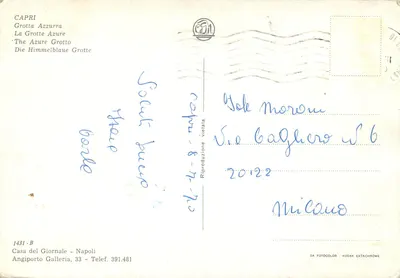 CAPRI
Grotta Azzurra
La Grotte Azure
The Azure Grotto
Die Himmelblaue Grotte
Saluti
Carla
Capri - 8-7-70
Riproduzione vietata
Moroni
Via Cagliero N 6
20122
Milano
1431 - B
Casa del Giornale - Napoli
Angiporto Galleria, 33 - Telef. 391.481